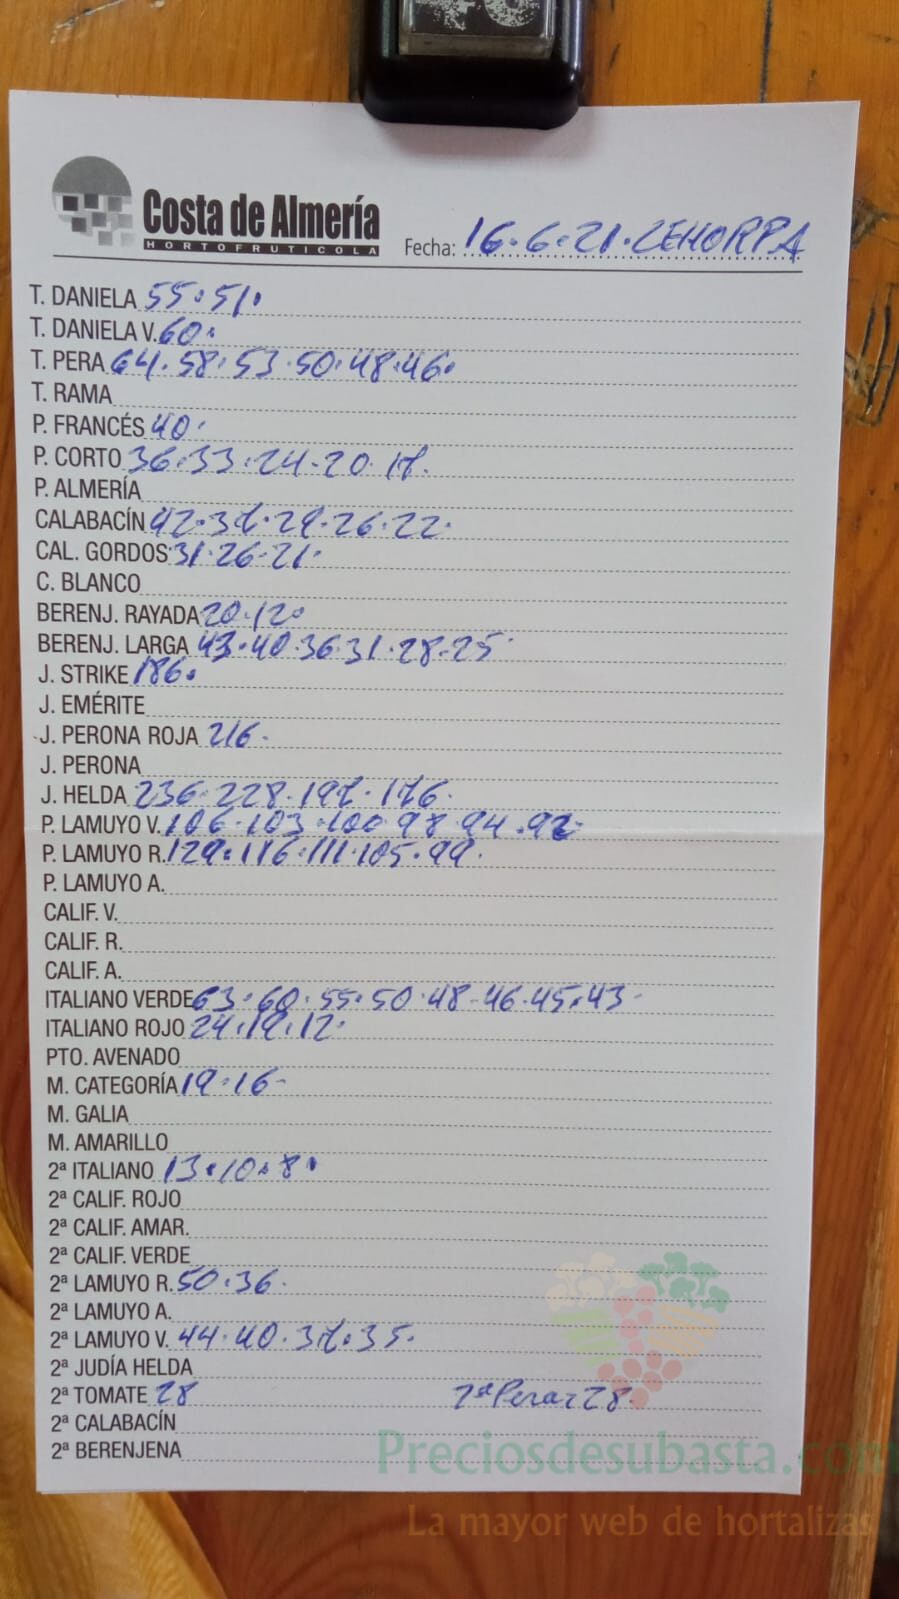 Costa de Almería
HORTOFRUTICOLA
Fecha: 16.6.21. ZEHORPA
T. DANIELA 55.51.
T. DANIELA V. 60.
T. PERA 64.58.53.50.48.46.
T. RAMA
P. FRANCÉS 40.
P. CORTO 36.33.24.20.17.
P. ALMERÍA
CALABACÍN 42.37.29.26.22.
CAL. GORDOS 31.26.21.
C. BLANCO
BERENJ. RAYADA 20.12.
BERENJ. LARGA 43.40.36.31.28.25.
J. STRIKE 186.
J. EMÉRITE
J. PERONA ROJA 216.
J. PERONA
J. HELDA 236.228.197.176.
P. LAMUYO V. 106.103.100.98.94.92.
P. LAMUYO R. 129.116.111.105.99.
P. LAMUYO A.
CALIF. V.
CALIF. R.
CALIF. A.
ITALIANO VERDE 63.60.55.50.48.46.45.43.
ITALIANO ROJO 24.19.12.
PTO. AVENADO
M. CATEGORÍA 19.16.
M. GALIA
M. AMARILLO
2ª ITALIANO 13.10.8.
2ª CALIF. ROJO
2ª CALIF. AMAR.
2ª CALIF. VERDE
2ª LAMUYO R. 50.36.
2ª LAMUYO A.
2ª LAMUYO V. 44.40.37.35.
2ª JUDÍA HELDA
2ª TOMATE 28 2ª Pera=28.
2ª CALABACÍN
2ª BERENJENA
Preciosdesubasta.com
La mayor web de hortalizas